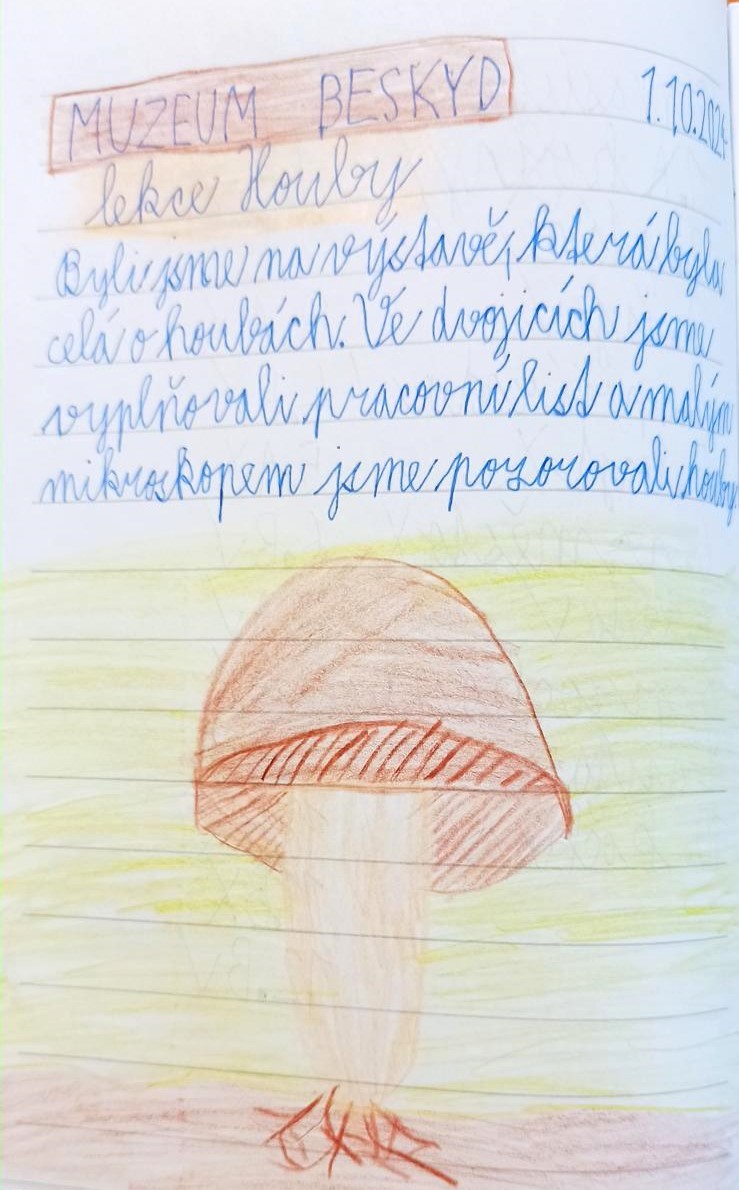 MUZEUM BESKYD 1.10.2024
lekce Houby
Byli jsme na výstavě, která byla
celá o houbách. Ve dvojicích jsme
vyplňovali pracovní list a malým
mikroskopem jsme pozorovali houby.